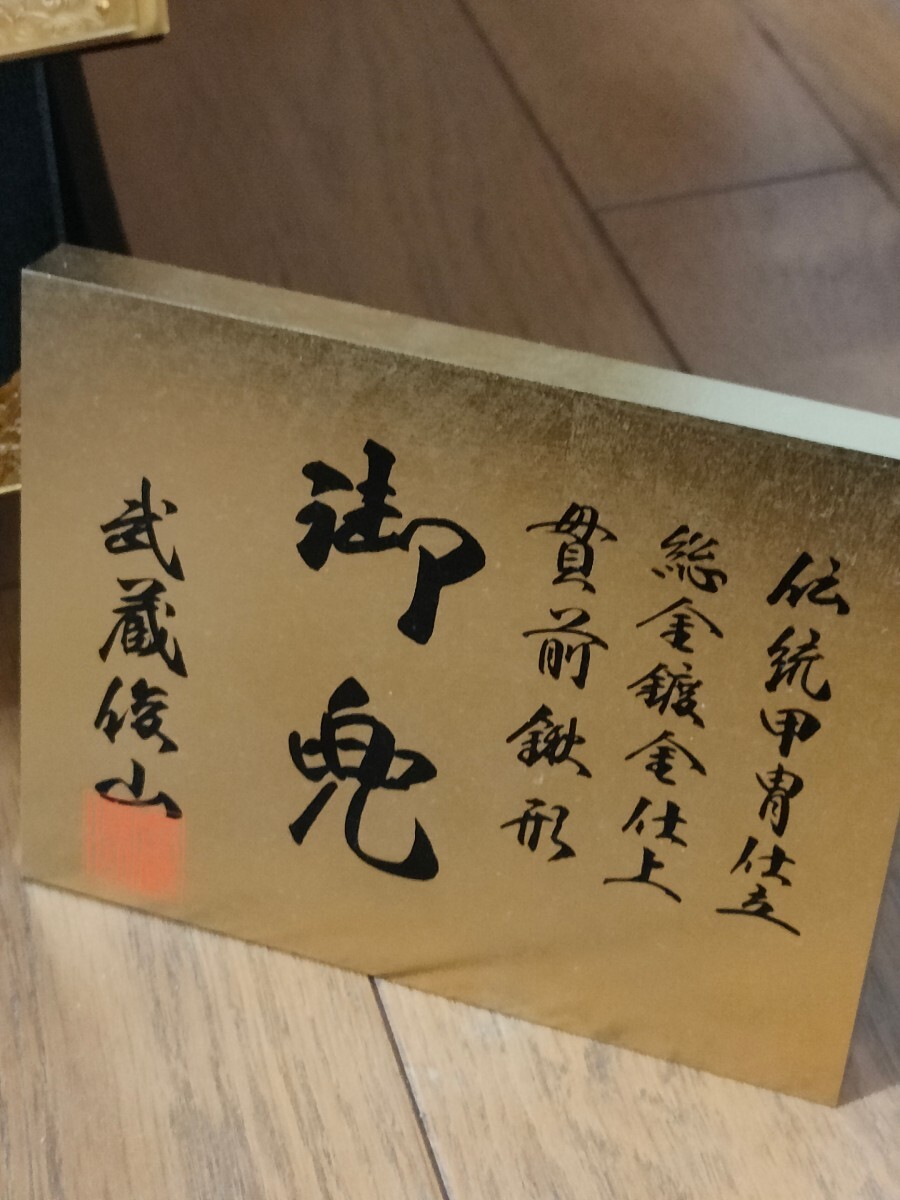 伝統甲冑仕立
総金鍍金仕上
貫前鍬形
御兜
武蔵俊山